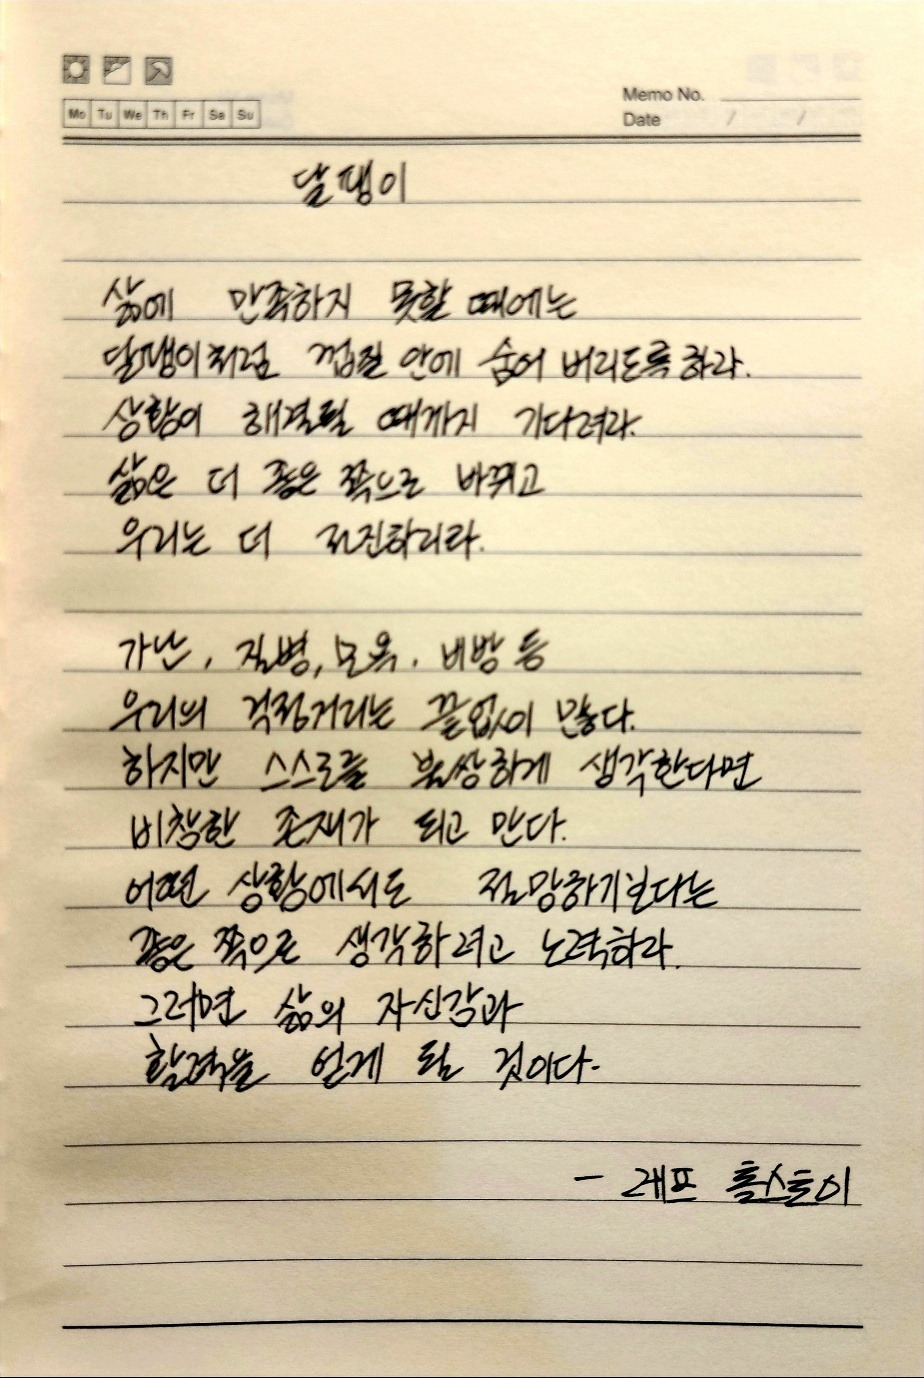 Memo No.
Mo Tu We Th Fr Sa Su
Date / /
달팽이
삶에 만족하지 못할 때에는
달팽이처럼 껍질 안에 숨어 버리도록 하라.
상황이 해결될 때까지 기다려라.
삶은 더 좋은 쪽으로 바뀌고
우리는 더 전진하리라.
가난, 질병, 모욕, 비방 등
우리의 걱정거리는 끝없이 많다.
하지만 스스로를 불쌍하게 생각한다면
비참한 존재가 되고 만다.
어떤 상황에서도 절망하기보다는
좋은 쪽으로 생각하려고 노력하라.
그러면 삶의 자신감과
활력을 얻게 될 것이다.
- 레프 톨스토이